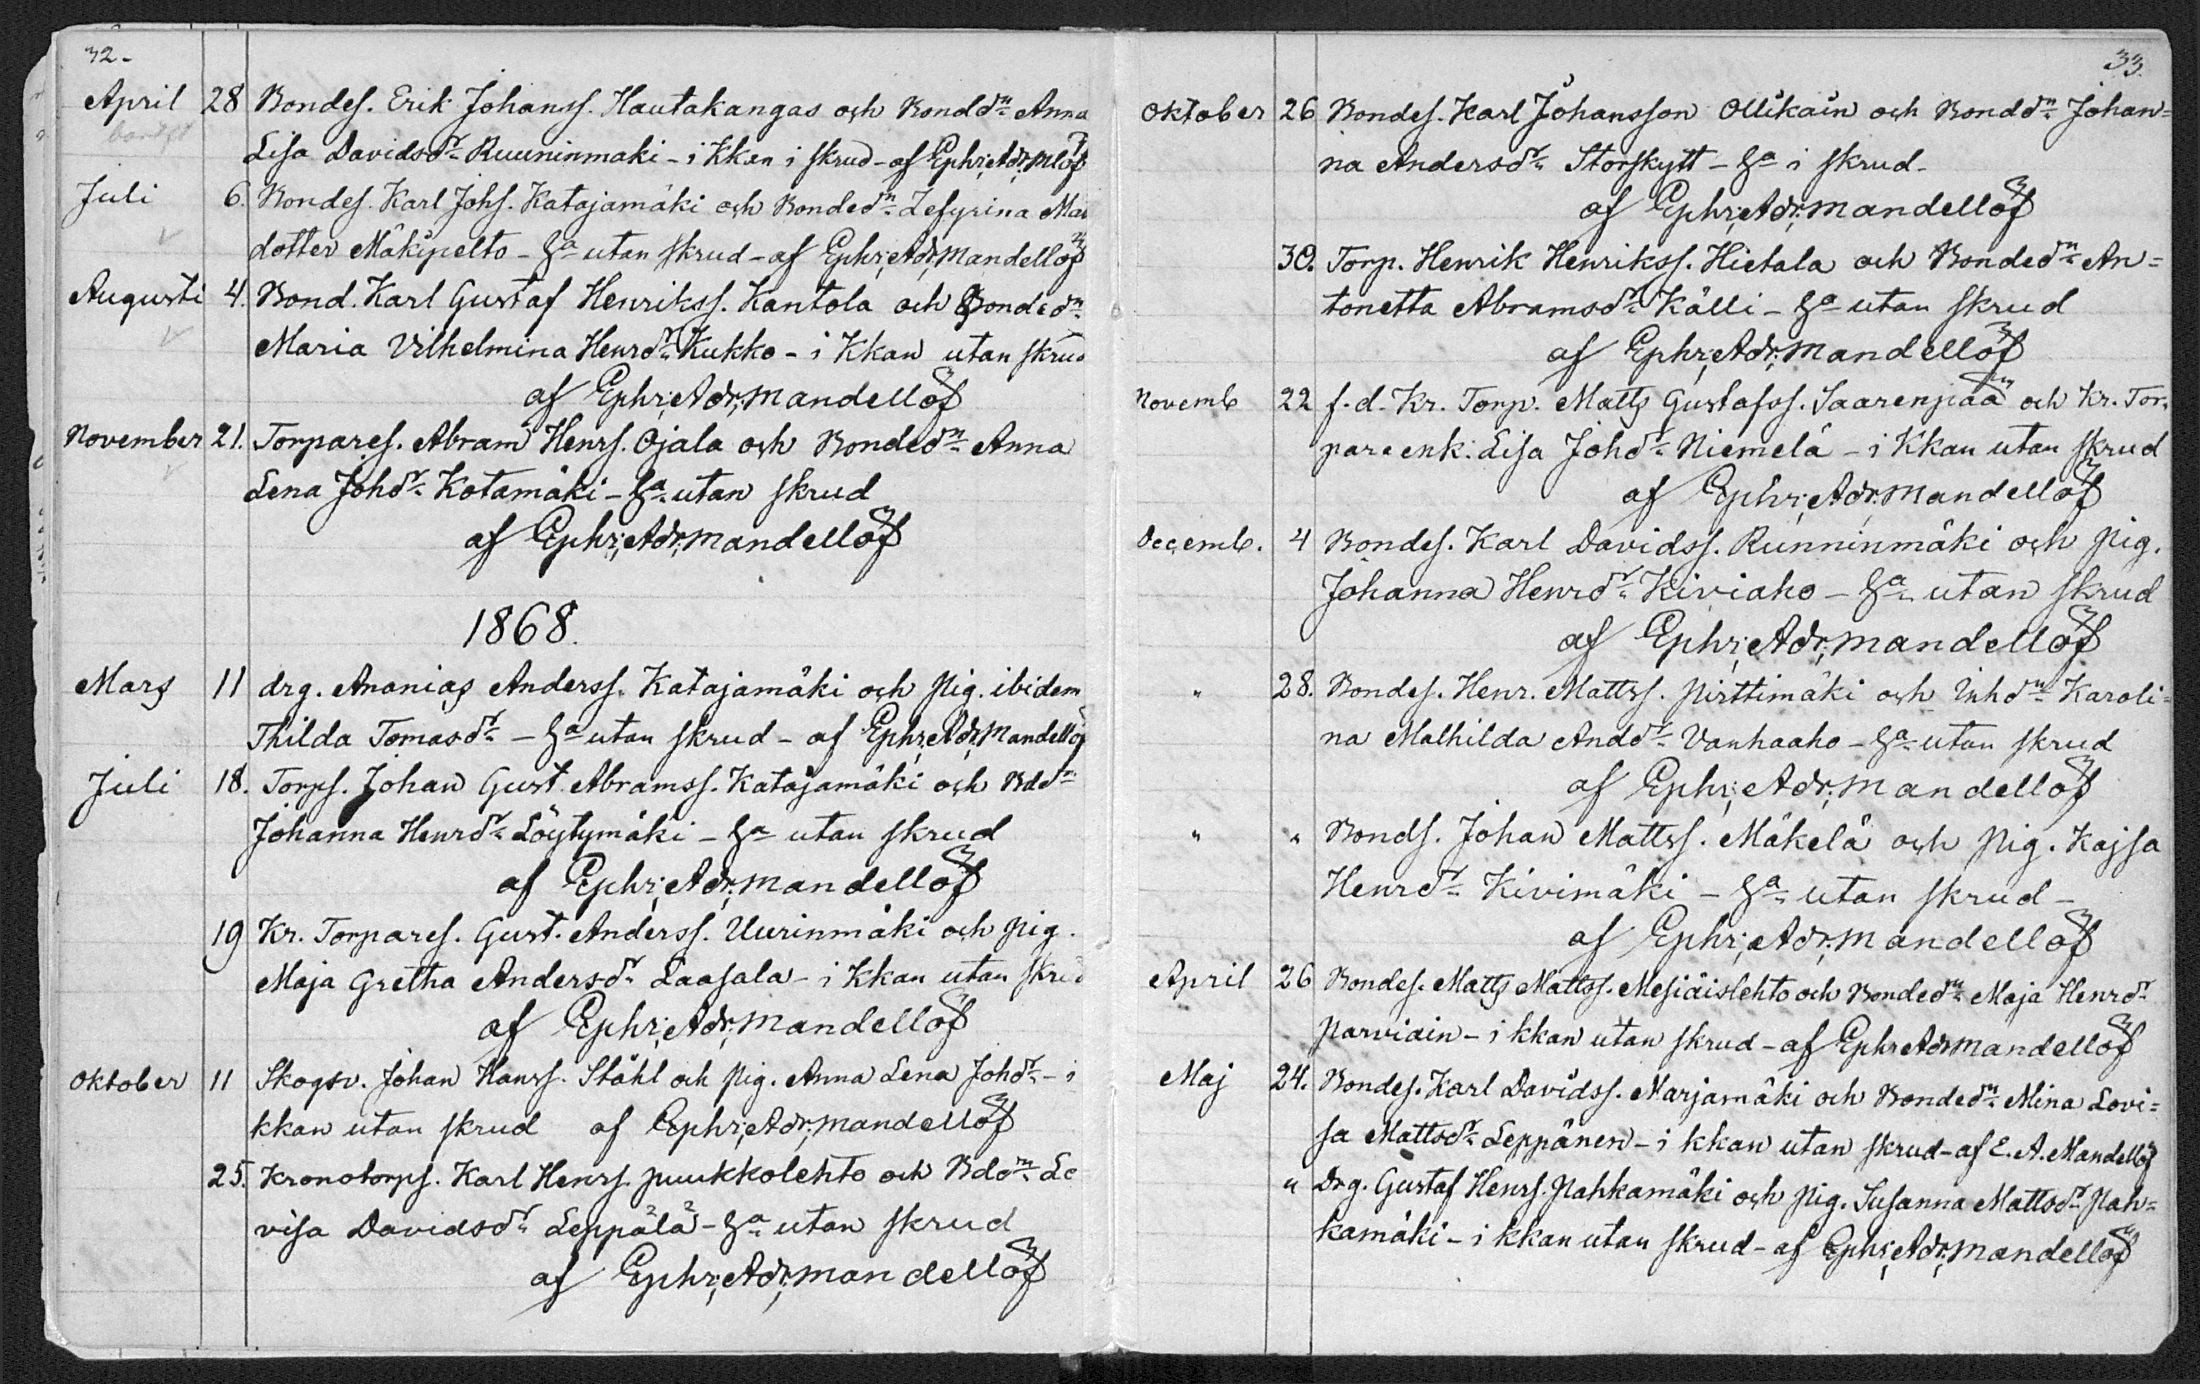 32.
April 28 Bondes. Erik Johanss. Hautakangas och Bonddn Anna
Lisa Davidsdr Ruuninmaki - i Kkan i skrud - af Ephr; Adr; Mlöf
Juli 6. Bondes. Karl Johs. Katajamäki och Bondedn Zefyrina
dotter Mäkipelto - Da utan skrud - af Ephr; Adr; Mandellöf
Augusti 4. Bond. Karl Gustaf Henrikss. Kantola och Bondedn
Maria Vilhelmina Henrdr Kukko - i Kkan utan skrud
af Ephr; Adr; Mandellöf
November 21. Torpares. Abram Henrs. Ojala och Bondedn Anna
Lena Johdr Kotamäki - Da utan skrud
af Ephr; Adr; Mandellöf
1868.
Mars 11 drg. Ananias Anderss. Katajamäki och pig. ibidem
Thilda Tomasdr - Da utan skrud - af Ephr; Adr; Mandellöf
Juli 18. Torps. Johan Gust. Abramss. Katajamäki och Bddn
Johanna Henrdr Löytymäki - Da utan skrud
af Ephr; Adr; Mandellöf
19 Kr. Torpares. Gust. Anderss. Uurinmäki och pig.
Maja Gretha Andersdr Laasala - i Kkan utan skrud
af Ephr; Adr; Mandellöf
Oktober 11 Skogsv. Johan Hanss. Ståhl och pig. Anna Lena Johdr - i
kkan utan skrud af Ephr; Adr; Mandellöf
25. Kronotorps. Karl Henrs. Puukkolehto och Bddn Lo
visa Davidsdr Leppälä - Da utan skrud
af Ephr; Adr; Mandellöf
33.
Oktober 26 Bondes. Karl Johansson Ollikain och Bonddn Johan=
na Andersdr Storskytt - Da i skrud -
af Ephr; Adr; Mandellöf
30. Torp. Henrik Henrikss. Hietala och Bondedn An=
tonetta Abramsdr Källi - Da utan skrud
af Ephr; Adr; Mandellöf
Novemb 22 f. d. Kr. Torp. Matts Gustafss. Saarenpää och Kr. Tor=
pareenk: Lisa Johdr Niemelä - i Kkan utan skrud
af Ephr; Adr; Mandellöf
Decemb. 4 Bondes. Karl Davidss. Runninmäki och pig.
Johanna Henrdr Kiviaho - Da utan skrud
af Ephr; Adr; Mandellöf
" 28. Bondes. Henr. Mattss. Pirttimäki och Inhdn Karoli=
na Mathilda Anddr Vanhaaho - Da utan skrud
af Ephr; Adr; Mandellöf
" " Bonds. Johan Mattss. Mäkelä och pig. Kajsa
Henrdr Kivimäki - Da utan skrud -
af Ephr; Adr; Mandellöf
April 26 Bondes. Matts Mattss. Mesiäislehto och Bondedn Maja Henrdr
Parviain - i kkan utan skrud - af Ephr Adr Mandellöf
Maj 24. Bondes. Karl Davidss. Marjamäki och Bondedn Mina Lovi=
sa Mattsdr Leppänen - i kkan utan skrud - af E. A. Mandellöf
" Drg. Gustaf Henrs. Pahkamäki och pig. Susanna Mattsdr Pah=
kamäki - i kkan utan skrud - af Ephr; Adr; Mandellöf